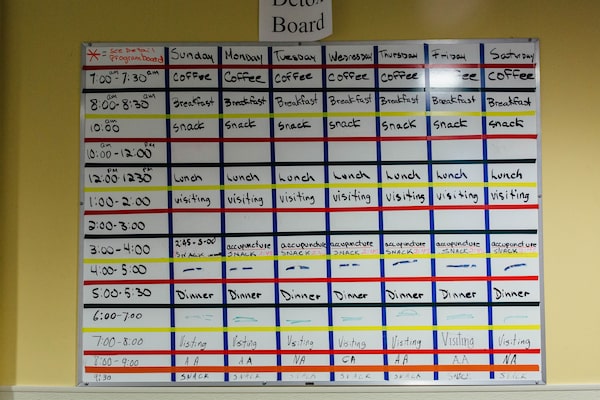 Detox
Board
* = See Detail: Sunday Monday Tuesday Wednesday Thursday Friday Saturday
Program board
7:00am-7:30am Coffee Coffee Coffee Coffee Coffee Coffee Coffee
8:00am-8:30am Breakfast Breakfast Breakfast Breakfast Breakfast Breakfast Breakfast
10:00am Snack Snack Snack Snack Snack Snack Snack
10:00am-12:00pm
12:00pm-1230pm Lunch Lunch Lunch Lunch Lunch Lunch Lunch
1:00-2:00 Visiting Visiting Visiting Visiting Visiting Visiting Visiting
2:00-3:00
3:00-4:00 2:45-3:00 accupuncture accupuncture accupuncture accupuncture accupuncture accupuncture
SNACK SNACK SNACK SNACK SNACK SNACK SNACK
4:00-5:00
5:00-5:30 Dinner Dinner Dinner Dinner Dinner Dinner Dinner
6:00-7:00
7:00-8:00 Visiting Visiting Visiting Visiting Visiting Visiting Visiting
8:00-9:00 AA AA NA CA AA AA NA
9:30 SNACK SNACK SNACK SNACK SNACK SNACK SNACK